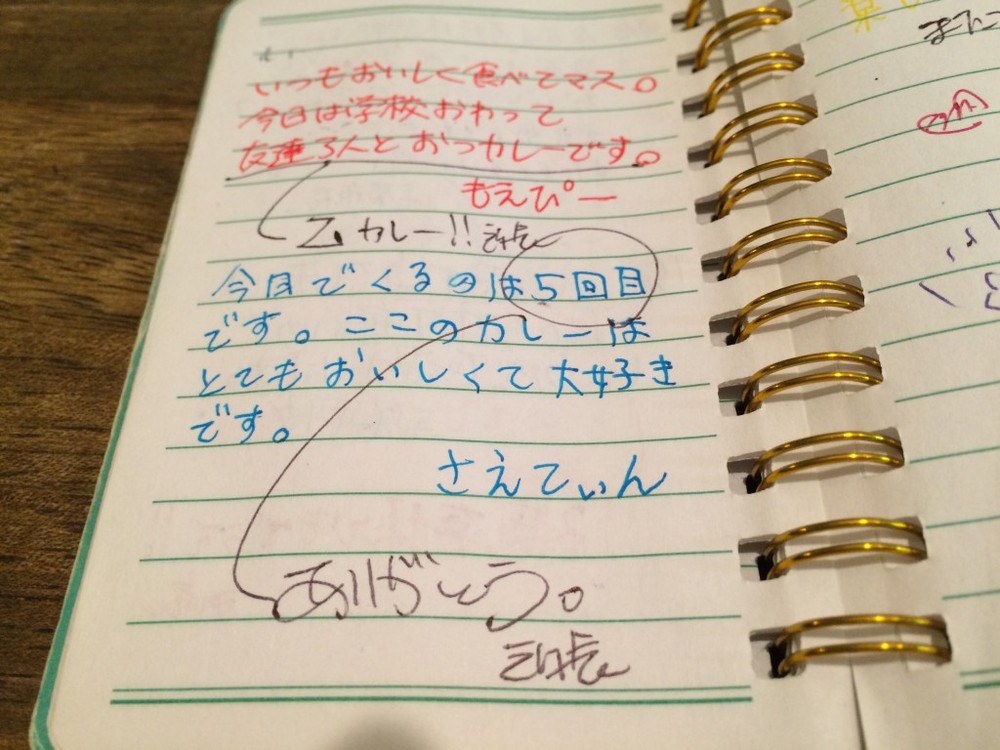 いつもおいしく食べてマス。
今日は学校おわって
友達3人とおつカレーです。
もえぴー
乙カレー!!
今日でくるのは5回目
です。ここのカレーは
とてもおいしくて大好き
です。
さえてぃん
ありがとう。